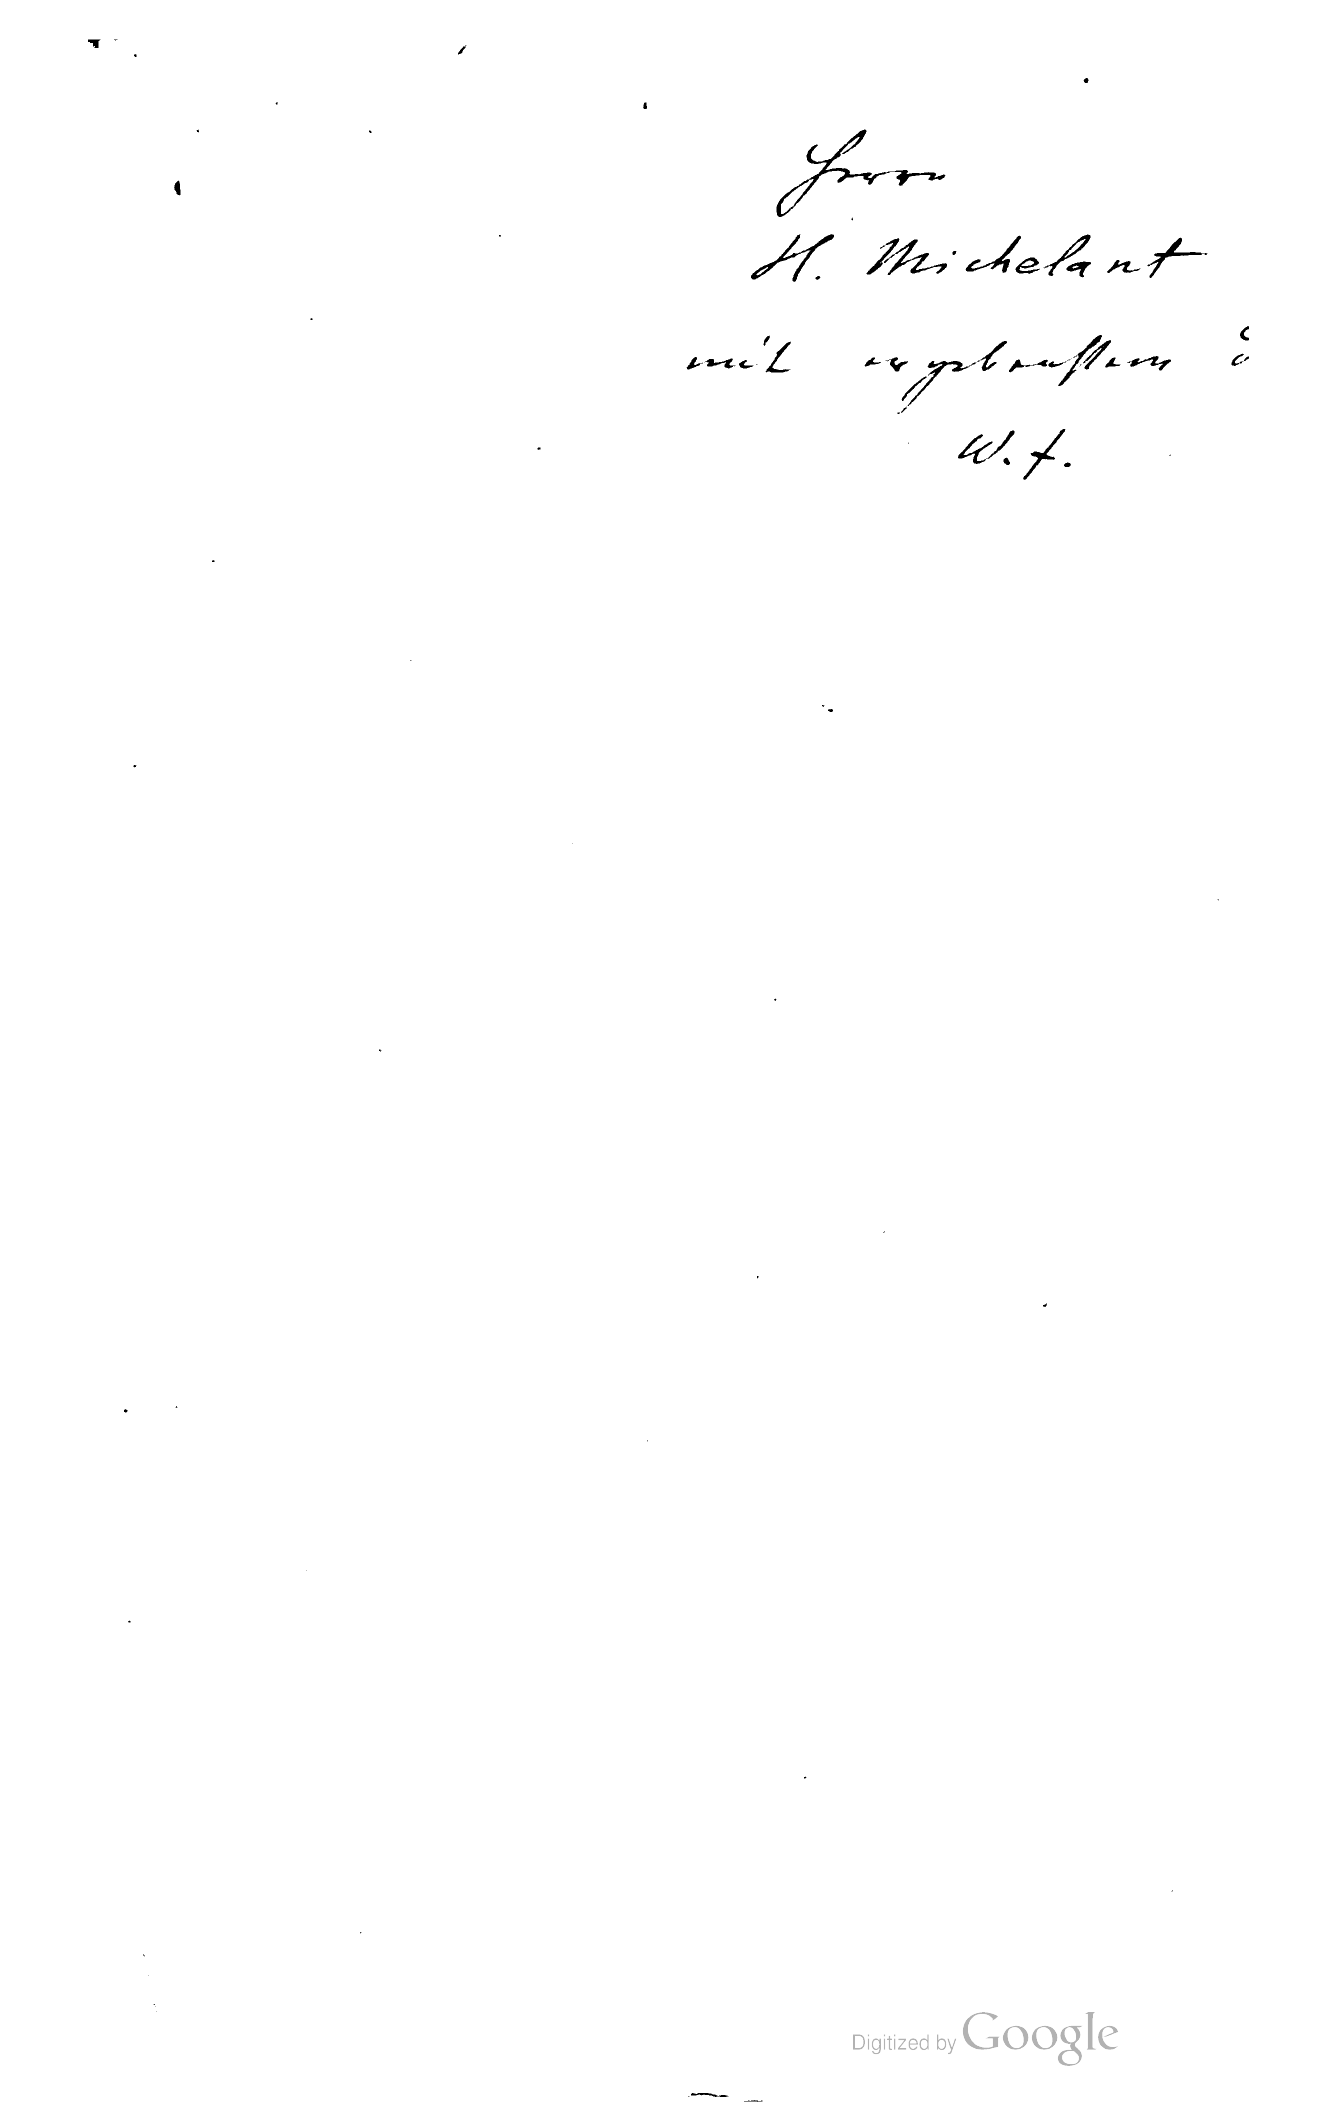 Herrn
H. Michelant
mit ergebenstem
W. F.
Digitized by Google